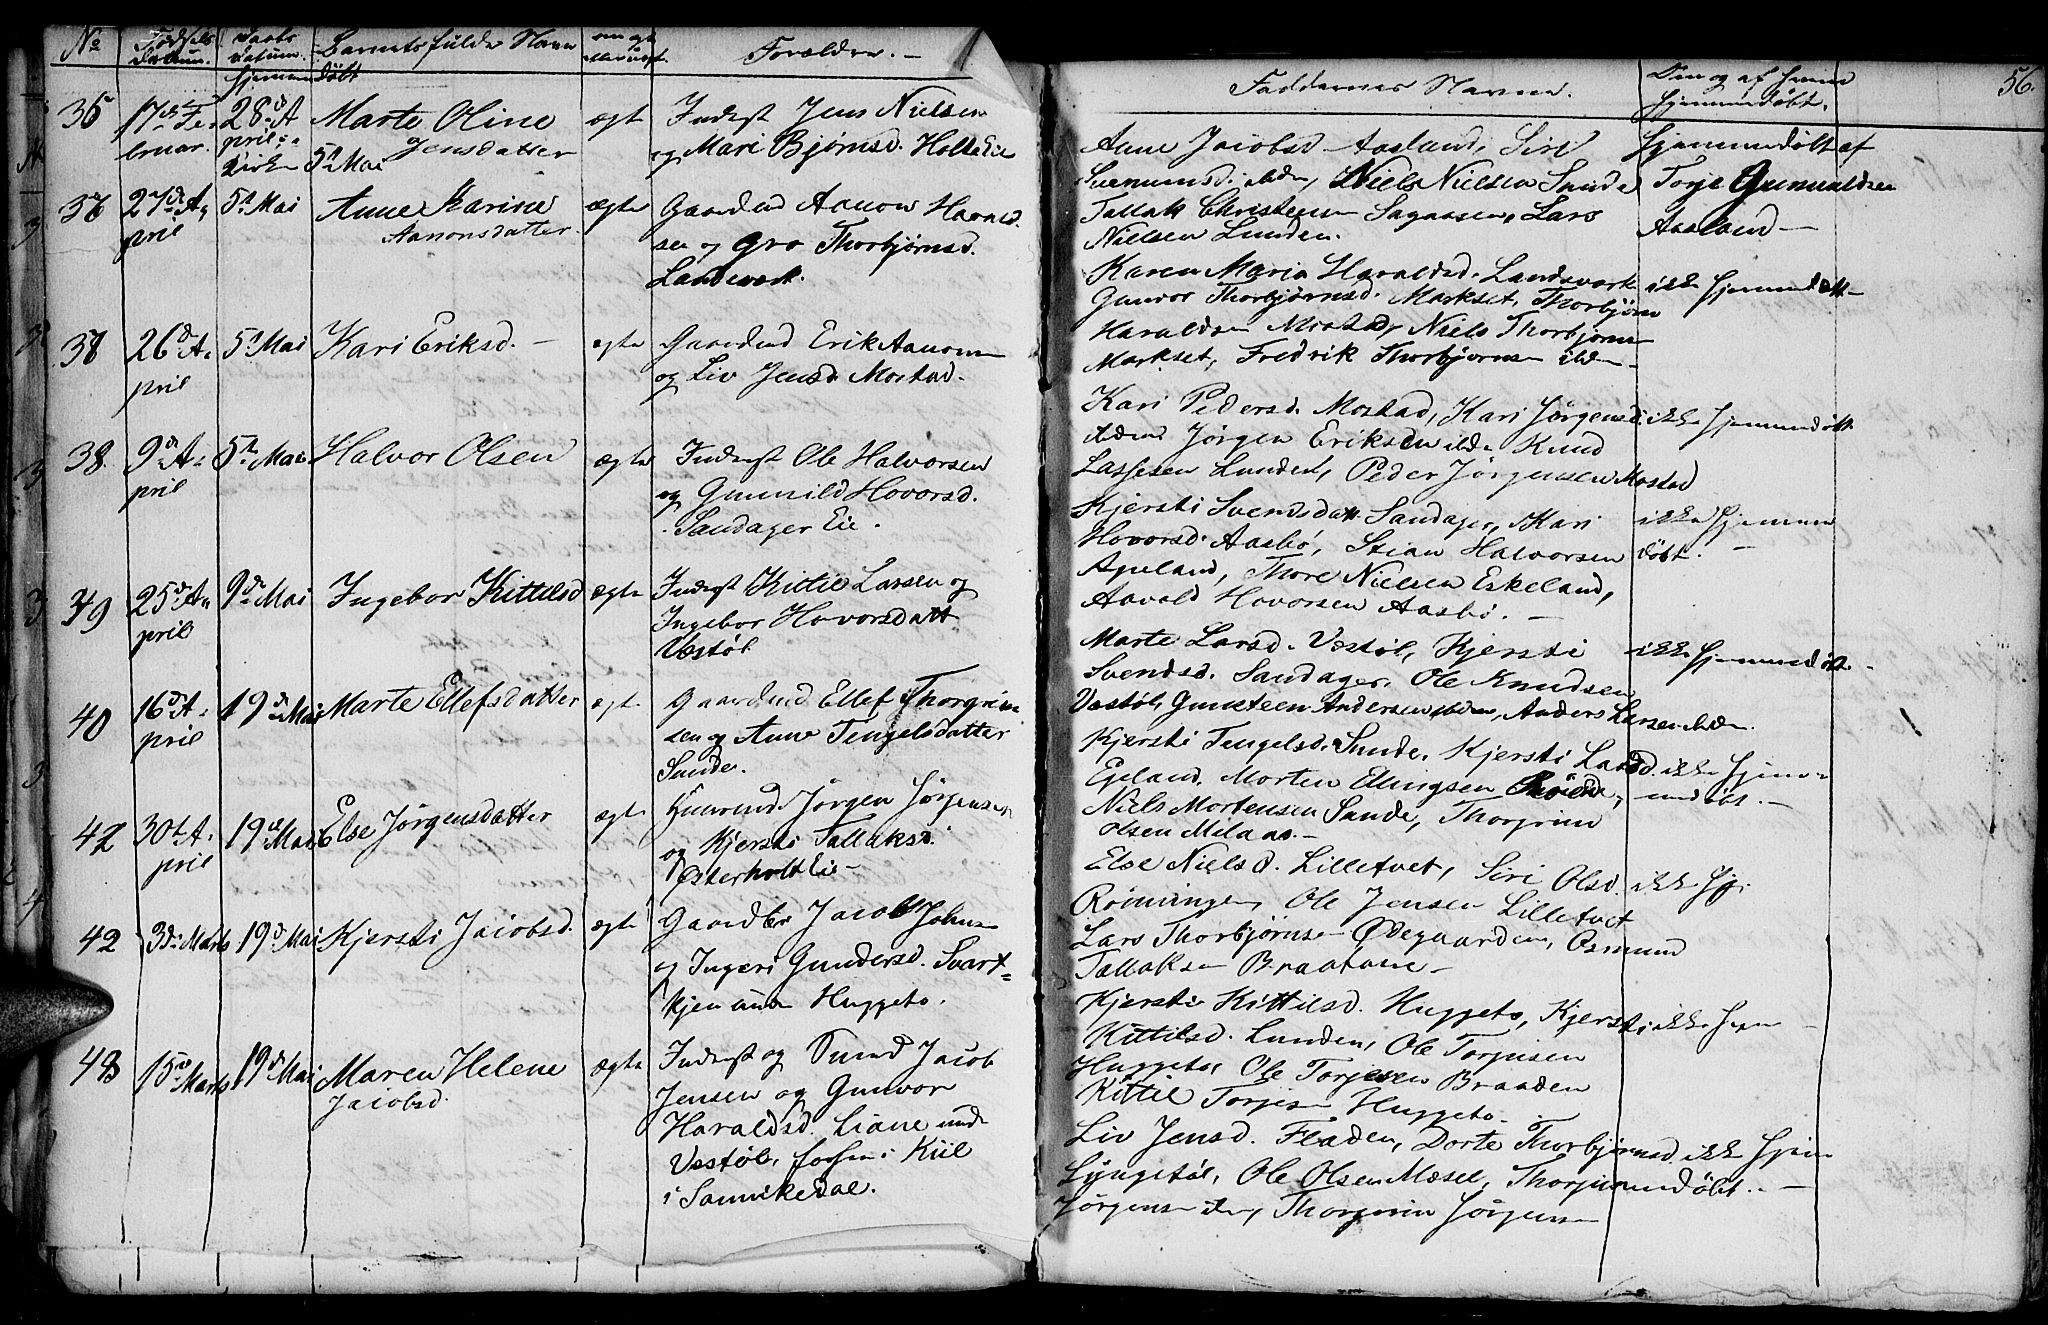 No
Fødsels
Datum.
Daabs
Datum.
Barnets fulde Navn
om ægte
Forældre. —
hjemmedøbt
35
17de Fe-
bruar.
28de A
pril;
Kirken 5te Mai
Marte Oline
Jensdatter
ægte
Inderst Jens Nielsen
og Mari Bjørnsd. Holte Eie
36
27de A,
pril
5te Mai
Anne Karine
Aanonsdatter.
ægte
Gaardmd Aanon Harald
sen og Gro Thorbjørnsd.
Landsverk.
37
26de A,
pril
5te Mai
Kari Eriksd. —
ægte
Gaardmd Erik Aanonsen
og Liv Jensd. Mostad.
38.
9de A-
pril
5te Mai
Halvor Olsen
ægte
Inderst Ole Halvorsen
og Gunnild Hovorsd.
Sandager Eie.
39
25de A,
pril
9de Mai
Ingebor Kittilsd
ægte
Inderst Kittil Larsen og
Ingebor Hovorsdatt
Vestøl
40
16de A-
pril
19de Mai
Marte Ellefsdatter
ægte
Gaardmd Ellef Thorgrim
sen og Anne Tengelsdatter
Sunde.
42
30te A-
pril
19de Mai
Else Jørgensdatter
ægte
Huusmd Jørgen Jørgensen
og Kjersti Tallaksd.
Østerholt Eie —
42
3die Marts
19de Mai
Kjersti Jacobsd.
ægte
Gaardbr Jacob Johns
og Ingeri Gundersd. Svart=
kjen under Huggeto.
43
15de Marts
19de Mai
Maren Helene
Jacobsd.
ægte
Inderst og Smed Jacob
Jensen og Gunvor
Haraldsd. Liane under
Vestøl, forhen i Kiil
i Sannikedal.
Faddernes Navne.
Om og af hvem
hjemmedøbt.
56.
Anne Jacobsd. Aasland, Siri
Svenumsd. ibidem, Niels Nielsen Sunde
Tallak Christensen Sagaasen, Lars
Nielsen Lunden.
hjemmedøbt af
Torje Gunnuldsen
Aasland —
Karen Maria Haraldsd. Landsverk
Gunvor Thorbjørnsd. Markset, Thorbjørn
Haraldsen Mostad, Niels Thorbjørnsen
Markset, Fredrik Thorbjørnsen ibidem —
ikke hjemmedøbt —
Kari Pedersd. Mostad, Kari Jørgensd.
ibidem Jørgen Eriksen ibidem Knud
Lassesen Lunden, Peder Jørgensen Mostad
ikke hjemmedøbt
Kjersti Svendsdatt. Sandager, Kari
Hovorsd. Aasbø, Stian Halvorsen
Apeland, Thore Nielsen Eskeland,
Aavold Hovorsen Aasbø. —
ikke hjemme
døbt. —
Marte Larsd. Vestøl, Kjersti
Svendsd. Sandager, Ole Knudsen
Vestøl, Gunsteen Andersen ibidem, Anders Larsen ibidem.
ikke hjemmedøbt —
Kjersti Tengelsd. Sunde, Kjersti Larsd.
Egeland, Morten Ellingsen Røisland,
Niels Mortensen Sunde, Thorgrim
Olsen Milaas. —
ikke hjem-
medøbt. —
Else Nielsd. Lilletvet, Siri Olsd.
Rønningen, Ole Jensen Lilletvet
Lars Thorbjørnsen Ødegaarden, Osmund
Tallaksen Braatane —
ikke hj.
Kjersti Kittilsd. Huggeto, Kjersti
Kittilsd. Lunden, Ole Torjusen
Huggeto, Ole Torjesen Braaden
Kittil Torjesen Huggeto.
ikke hjem —
Liv Jensd. Fladen, Dorte Thorbjørnsd.
Lyngstøl, Ole Olsen Mæsel, Thorjus
Jørgensen ibidem, Thorgrim Jørgensen
ikke hjem
medøbt. —